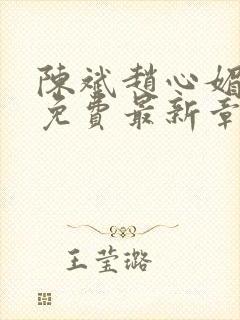 陳斌趙心媚
免費最新章
王莹璐